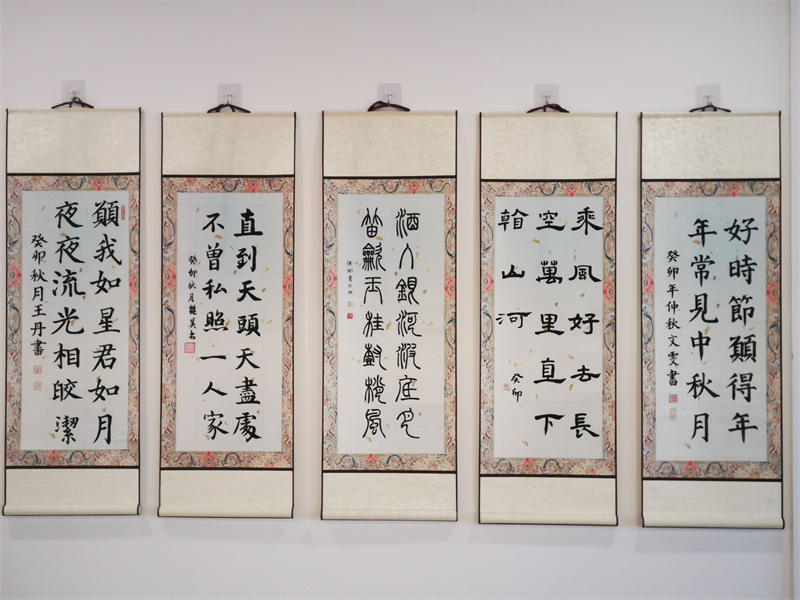 好時節願得年
年常見中秋月
癸卯年仲秋文雯書
乘風好去長
空萬里直下
䀍山河
癸卯
酒入銀河波底月
笛龡玉桂樹梢風
直到天頭天盡處
不曾私照一人家
癸卯秋月
願我如星君如月
夜夜流光相皎潔
癸卯秋月王丹書